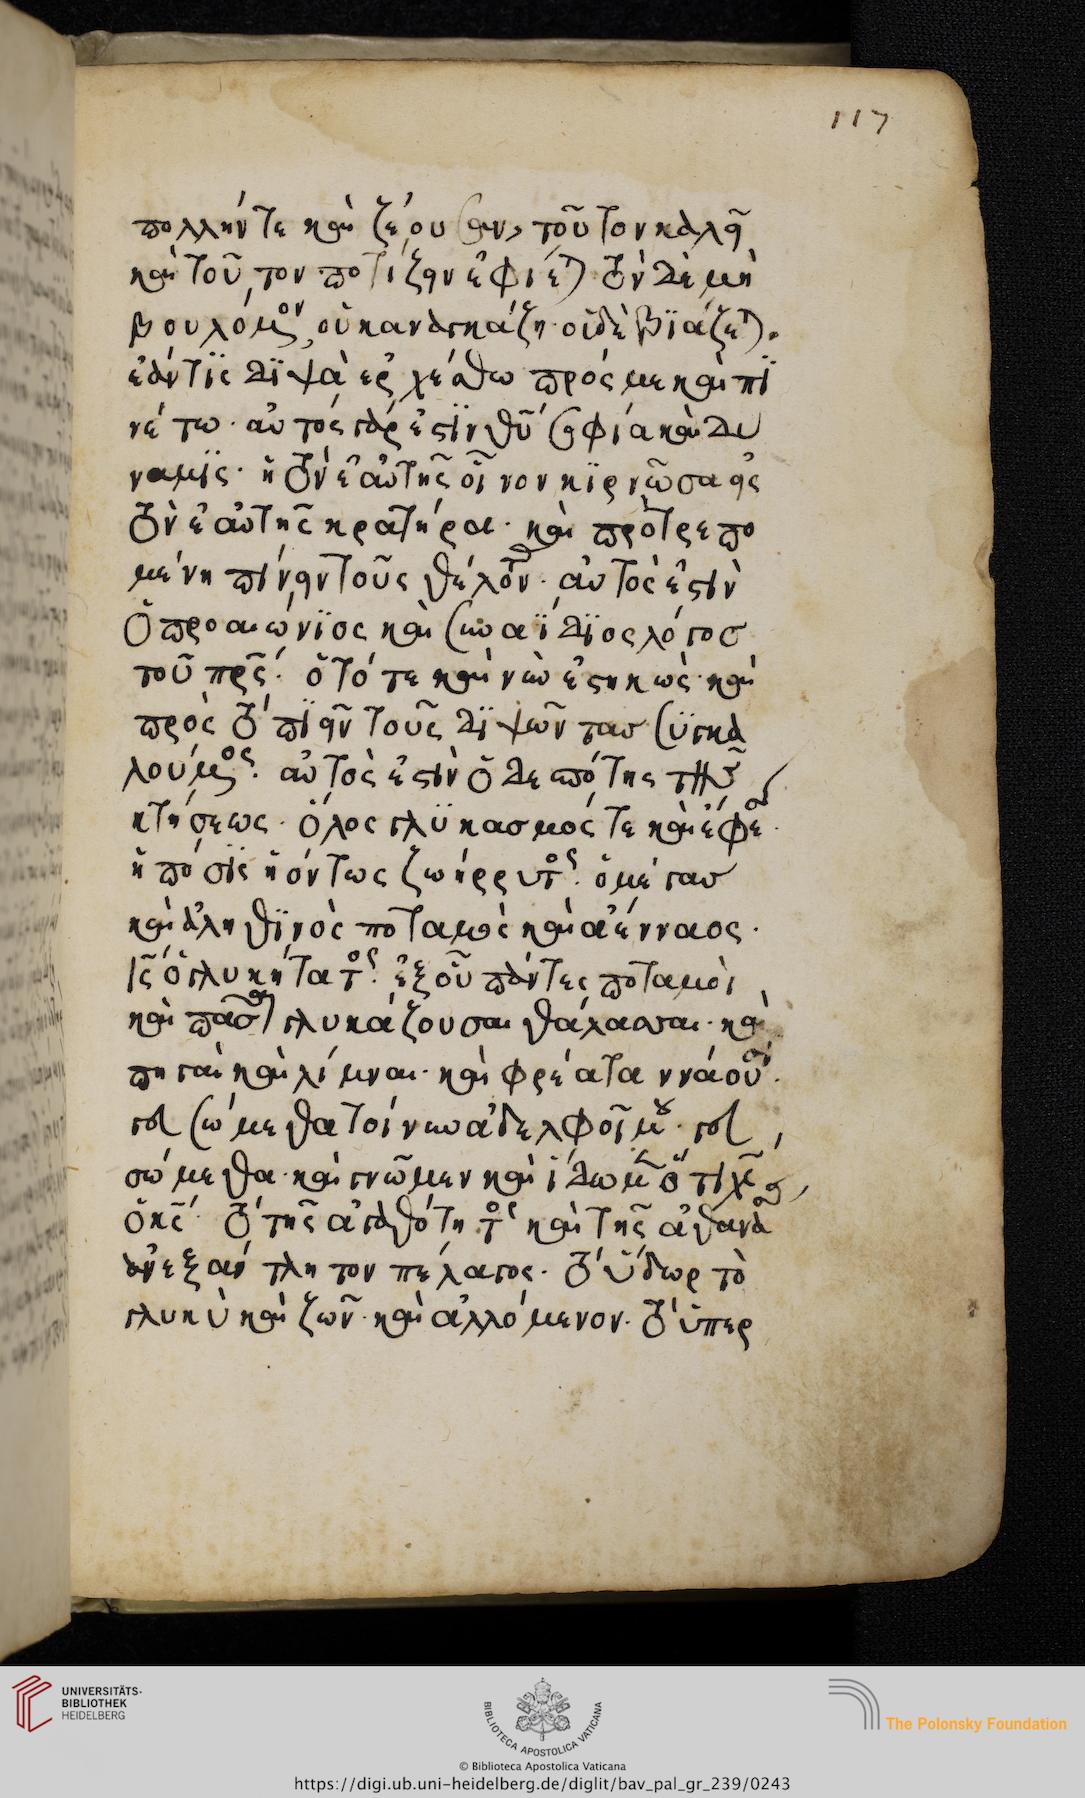 117
πολλήν τε καὶ ζέουσαν, τοῦτον καλεῖ
καὶ τοῦτον ποτίζειν ἐφίεται τὸν δὲ μὴ
βουλόμενον, οὐκ ἀναγκάζει οὐδὲ βϊάζεται.
ἐάν τϊς δϊψᾶ ἐρχέσθω πρός με καὶ πϊ
νέτω· αὐτός γάρ ἐστὶν θεοῦ σοφία καὶ δύ
ναμϊς· ἡ τὸν ἑαυτῆς οἶνον κϊρνῶσα εἰς
τὸν ἑαυτῆς κρατήρα· καὶ προτρεπο
μένη πίνειν τοῦς θέλοντας· αὐτὸς ἐστὶν
ὁ προαιώνϊος καὶ συναΐδϊος λόγος
τοῦ πρς· ὁ τότε καὶ νῦν ἑστηκὼς· καὶ
πρὸς τὸ πϊεῖν τοῦς δϊψῶντας συγκα
λούμενος· αὐτὸς ἐστὶν ὁ δεσπότης τῆς
κτήσεως· ὅλος γλϋκασμός τε καὶ ἔφεσις·
ἡ πόσϊς ἡ όντως ζωήρρυτος· ὁ μέγας
καὶ ἀληθϊνὸς ποταμὸς καὶ ἀένναος·
ις ὁ γλυκήτατος· ἐξ οὗ πάντες ποταμοὶ
καὶ πᾶσαι γλυκάζουσαι θάλασσαι· καὶ
πηγαὶ καὶ λίμναι· καὶ φρέατα
γευσώμεθα τοίνυν ἀδελφοῖ μου· γευ
σώμεθα· καὶ γνῶμεν καὶ ἴδωμεν ὅτι χς
ὁ κς· τὸ τῆς ἀγαθότητος καὶ τῆς ἀθανασίας
ἀνεξάντλητον πέλαγος· τὸ ὕδωρ τὸ
γλυκὺ καὶ ζῶν· καὶ ἀλλόμενον· τὸ ὑπερ
UNIVERSITÄTS-
BIBLIOTHEK
HEIDELBERG
BIBLIOTECA APOSTOLICA VATICANA
The Polonsky Foundation
© Biblioteca Apostolica Vaticana
https://digi.ub.uni-heidelberg.de/diglit/bav_pal_gr_239/0243